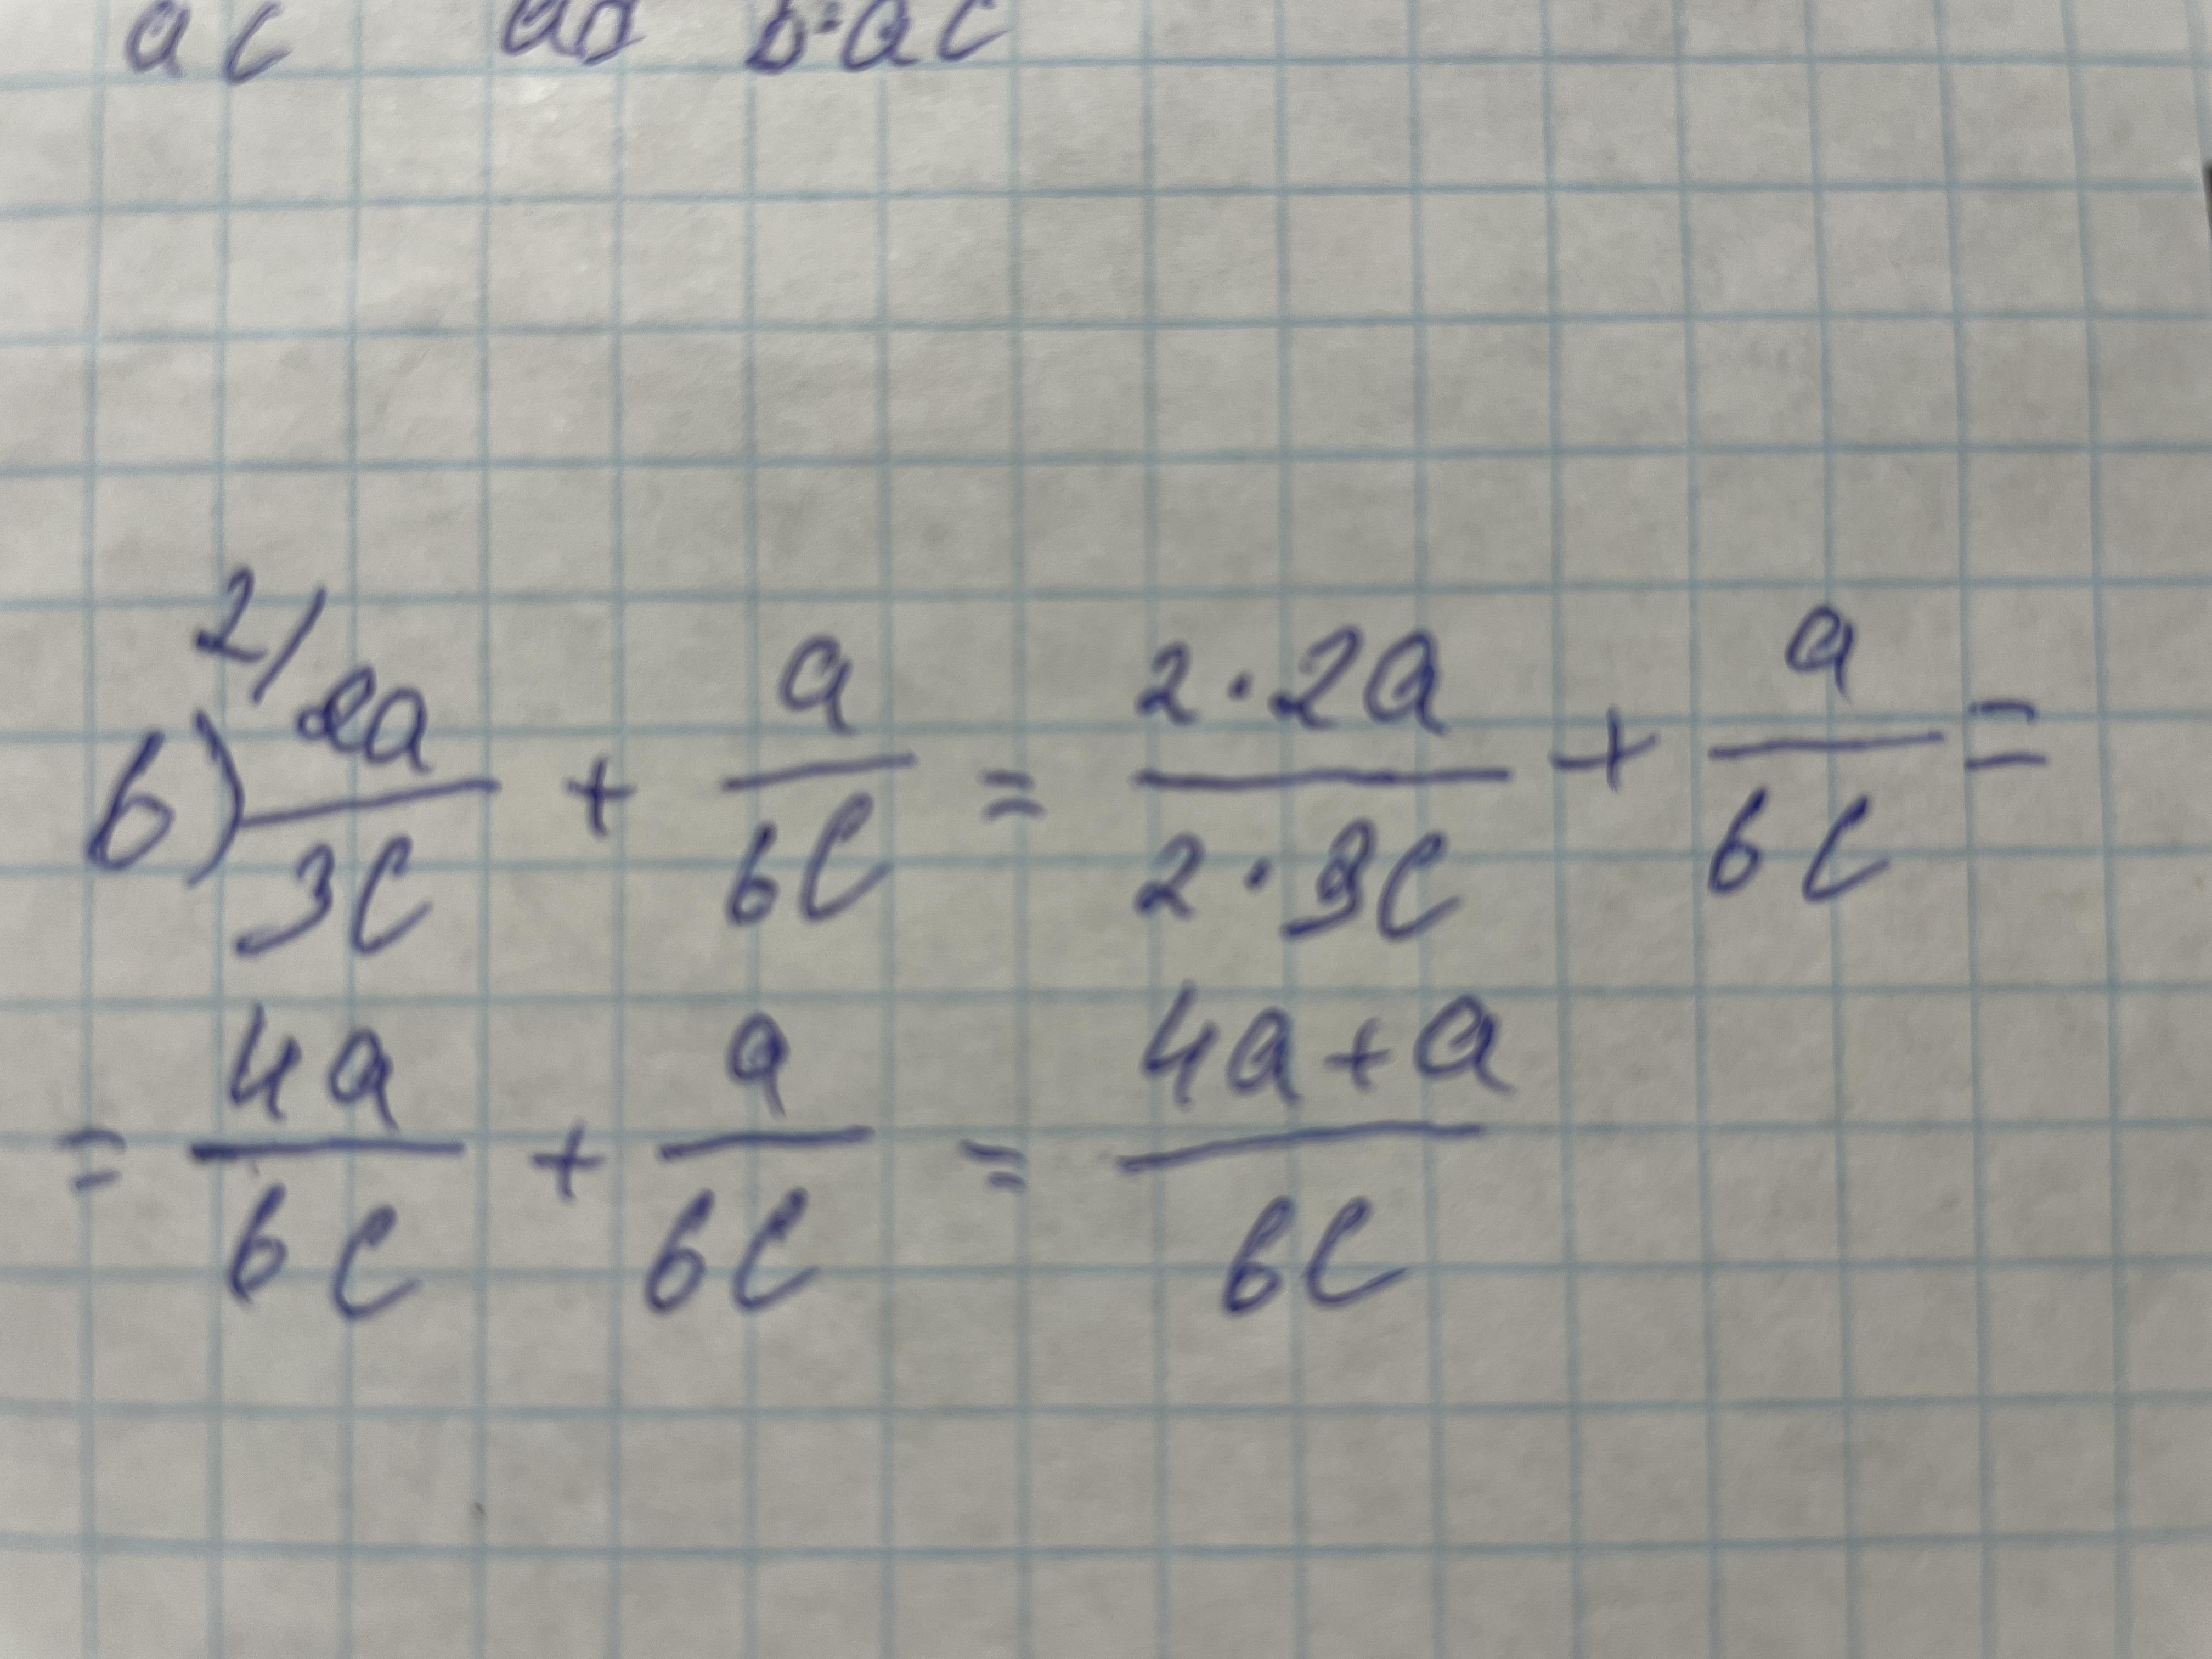 ac ab b²ac
2/
б) 2a/3c + a/6c = 2·2a/2·3c + a/6c =
= 4a/6c + a/6c = 4a+a/6c